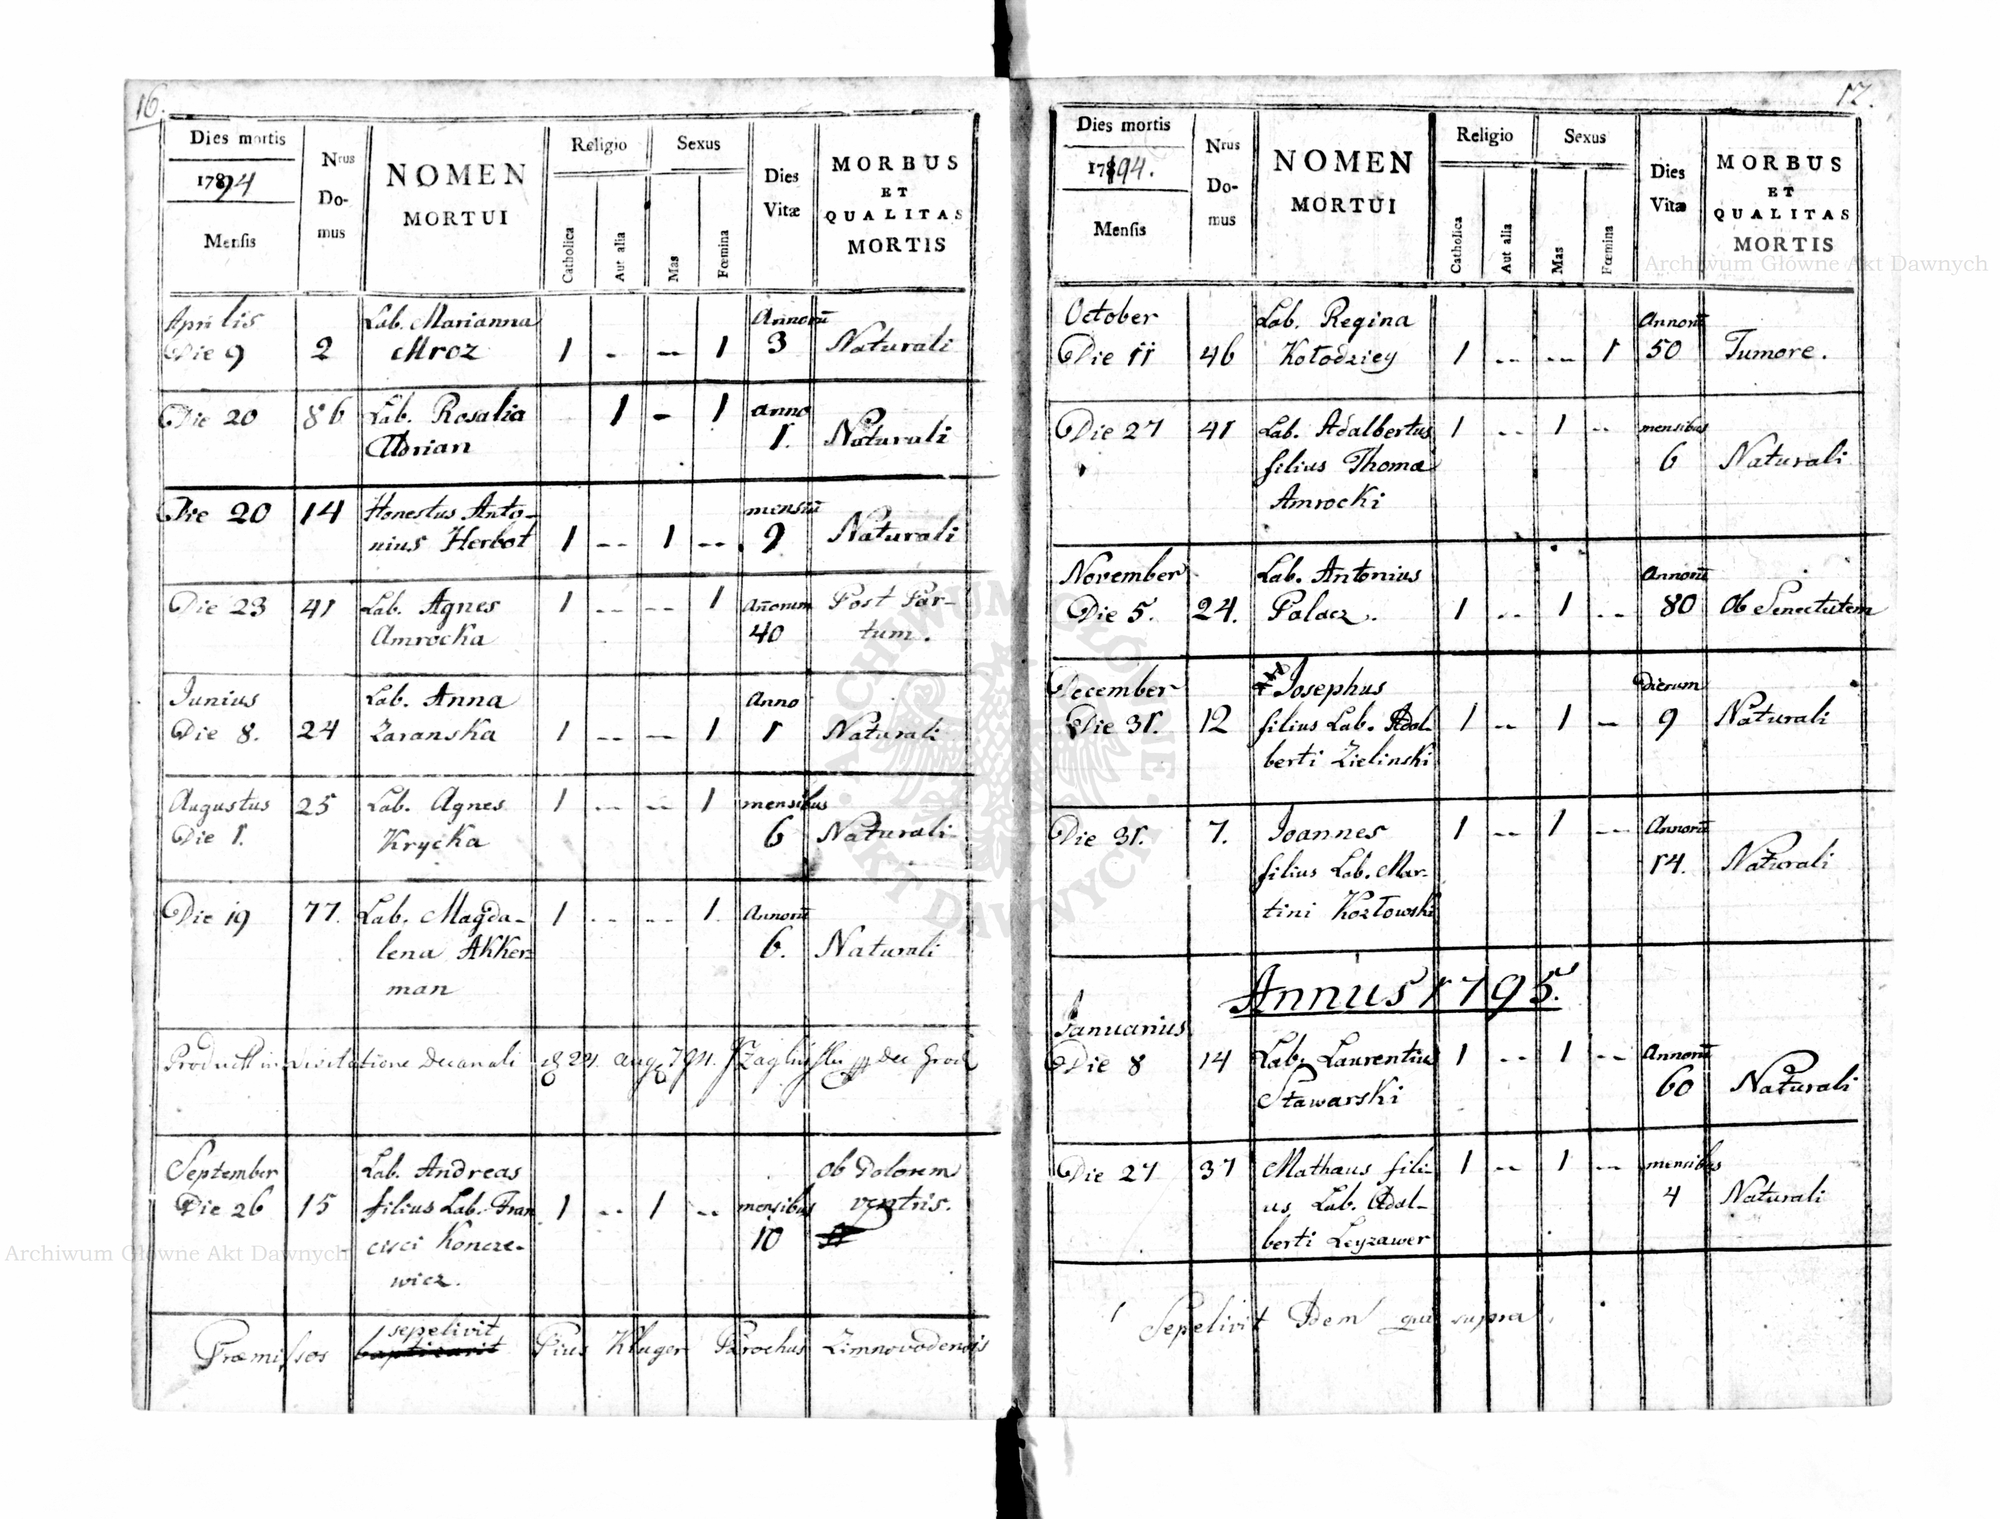 16.
Dies mortis
1794
Mensis
Nrus
Do-
mus
NOMEN
MORTUI
Religio
Catholica
Aut alia
Sexus
Mas
Fœmina
Dies
Vitæ
MORBUS
ET
QUALITAS
MORTIS
Aprilis Lab. Marianna Annorũ
Die 9 2 Mroz 1 -- -- 1 3 Naturali
Die 20 86 Lab. Rosalia 1 - 1 anno
Adrian 1. Naturali
Die 20 14 Honestus Anto- mensiũ
nius Herbot 1 -- 1 -- 9 Naturali
Die 23 41 Lab. Agnes 1 -- -- 1 Añorum Post Par-
Amrocka 40 tum.
Junius Lab. Anna Anno
Die 8. 24 Zaranska 1 -- -- 1 1 Naturali
Augustus 25 Lab. Agnes 1 -- -- 1 mensibus
Die 1. Krycka 6 Naturali
Die 19 77. Lab. Magda- 1 -- -- 1 Annorũ
lena Akker- 6. Naturali
man
in Visitatione Decanali 24 aug 794.
September Lab. Andreas ob Dolorem
Die 26 15 filius Lab. Fran 1 -- 1 -- mensibus ventris.
cisci Koncze- 10
wicz.
sepelivit
Præmissos baptizavit Pius Kluger Parochus Zimnovodensis
17.
Dies mortis
1794.
Mensis
Nrus
Do-
mus
NOMEN
MORTUI
Religio
Catholica
Aut alia
Sexus
Mas
Fœmina
Dies
Vitæ
MORBUS
ET
QUALITAS
MORTIS
October Lab. Regina Annorũ
Die 11 46 Kołodziey 1 -- -- 1 50 Tumore.
Die 27 41 Lab. Adalbertus 1 -- 1 -- mensibus
filius Thoma 6 Naturali
Amrocki
November Lab. Antonius Annorũ
Die 5. 24. Palacz. 1 -- 1 -- 80 Ob Senectutem
December Josephus Dierum
Die 31. 12 filius Lab. Adal- 1 -- 1 -- 9 Naturali
berti Zielinski
Die 31. 7. Joannes 1 -- 1 -- Annorũ
filius Lab. Mar- 14. Naturali
tini Kozłowski
Annus 1795.
Januarius
Die 8 14 Lab. Laurentius 1 -- 1 -- Annorũ
Stawarski 60 Naturali
Die 27 37 Mathæus fili- 1 -- 1 -- mensibus
us Lab. Adal- 4 Naturali
berti Leyzawer
Sepelivit Idem qui supra.
Archiwum Główne Akt Dawnych
Archiwum Główne Akt Dawnych
ARCHIWUM GŁÓWNE AKT DAWNYCH